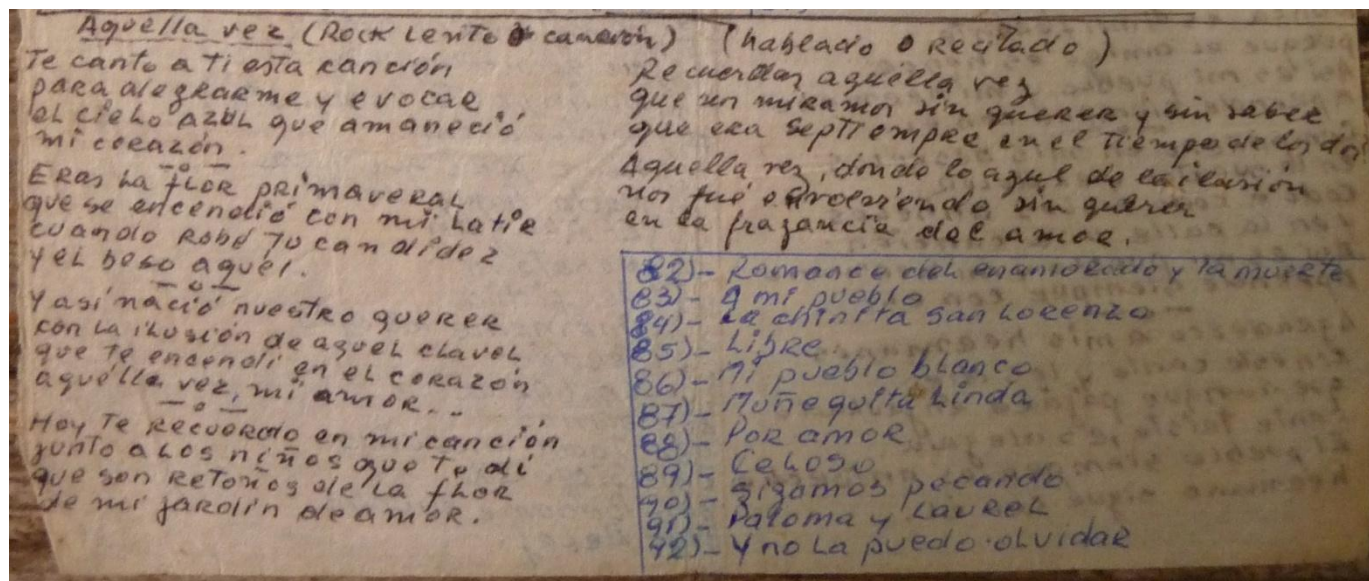 Aquella vez (Rock Lento o canción)
Te canto a ti esta canción
para alegrarme y evocar
el cielo azul que amaneció
mi corazón.
— o —
Eras la flor primaveral
que se encendió con mi latir
cuando robé tu candidez
y el beso aquel.
— o —
Y así nació nuestro querer
con la ilusión de aquel clavel
que te encendí en el corazón
aquella vez, mi amor...
— o —
Hoy te recuerdo en mi canción
junto a los niños que te di
que son retoños de la flor
de mi jardín de amor.
(hablado o recitado)
Recuerdas aquella vez
que nos miramos sin querer y sin saber
que era Septiempre en el tiempo de los dos
Aquella vez, donde lo azul de la ilusión
nos fué envolviendo sin querer
en la fragancia del amor.
82)- Romance del enamorado y la muerte
83)- A mi pueblo
84)- La chinita San Lorenzo
85)- Libre
86)- Mi pueblo blanco
87)- Muñequita Linda
88)- Por amor
89)- Celoso
90)- Sigamos pecando
91)- Paloma y Laurel
92)- Y no la puedo olvidar